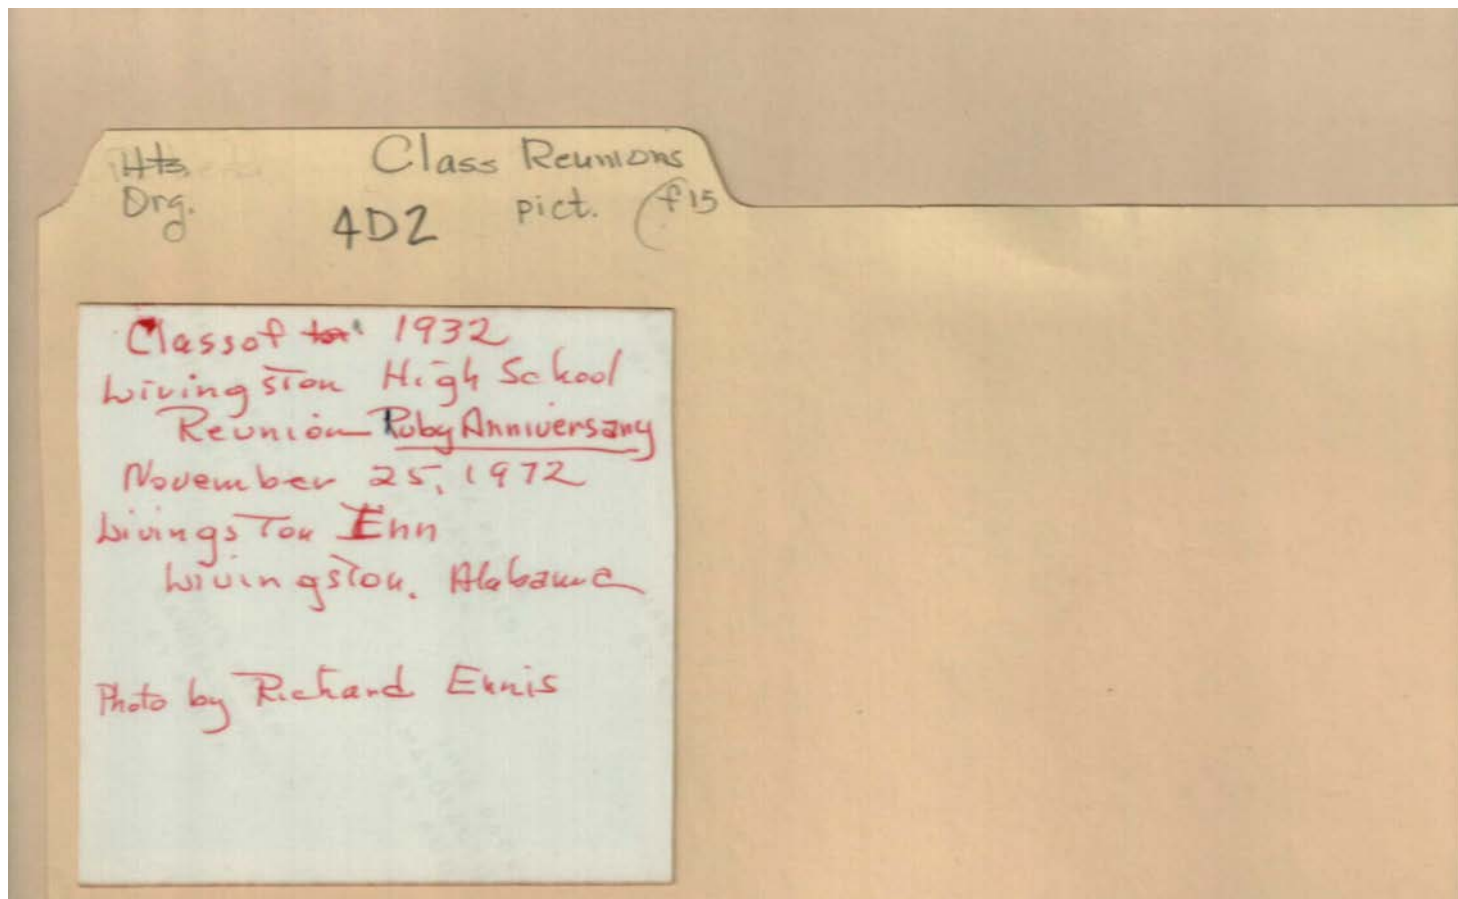 Class Reunions
Org. pict. (f15
4D2
Class of 1932
Livingston High School
Reunion Ruby Anniversary
November 25, 1972
Livingston Inn
Livingston, Alabama
Photo by Richard Ennis